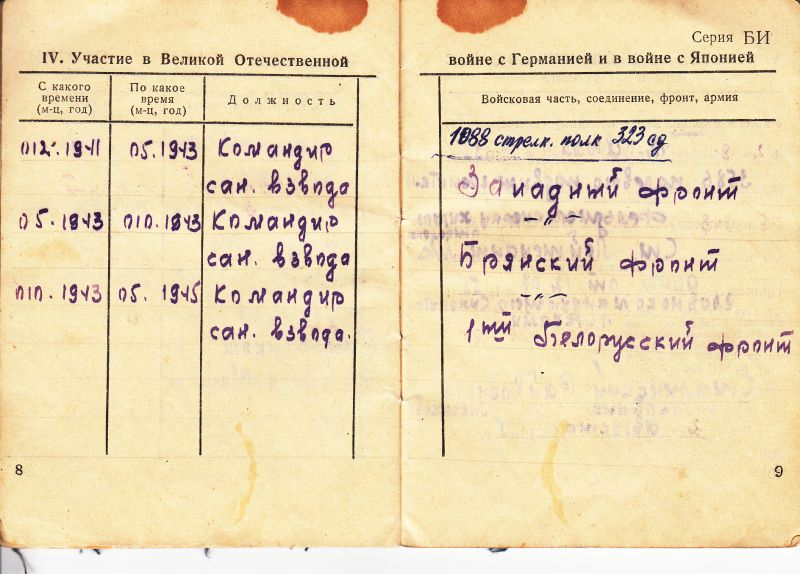 IV. Участие в Великой Отечественной
С какого времени (м-ц, год)
По какое время (м-ц, год)
Должность
012. 1941 05. 1943 Командир
сан. взвода
05. 1943 010. 1943 Командир
сан. взвода
010. 1943 05. 1945 Командир
сан. взвода.
8
Серия БИ
войне с Германией и в войне с Японией
Войсковая часть, соединение, фронт, армия
1088 стрелк. полк 323 сд
Западный фронт
-"-
Брянский фронт
-"-
1тый Белорусский фронт
9